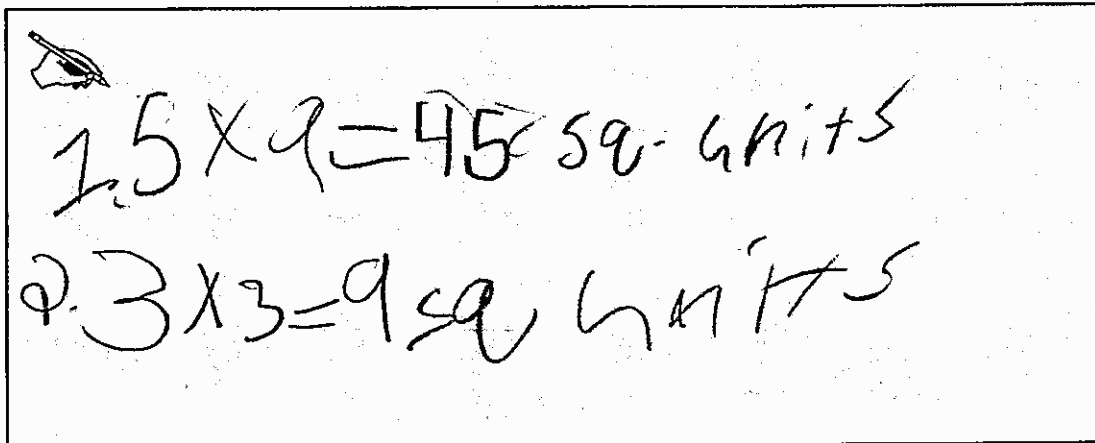 1. 5 x 9 = 45 sq. units
2. 3 x 3 = 9 sq units